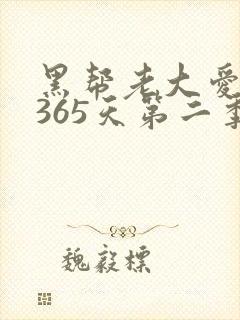 黑帮老大爱
365天第二季
魏毅標